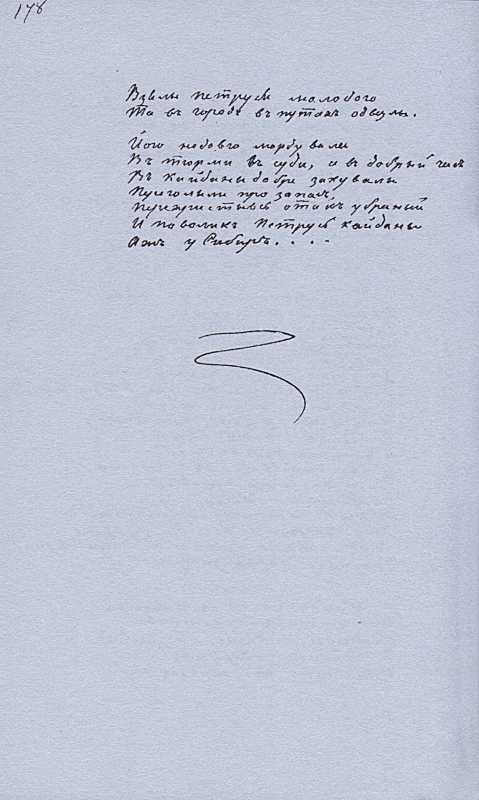 178
Взялы петруся молодого
Та въ городъ въ путахъ одвезлы.
Його недовго мордували
Въ тюрми въ суди, а въ добрый часъ
Въ Кайданы добре закували
Преголыли про запасъ,
Перехристывсь отакъ убраный
И поволикъ Петрусь кайданы
Ажъ у Сибиръ. . . .